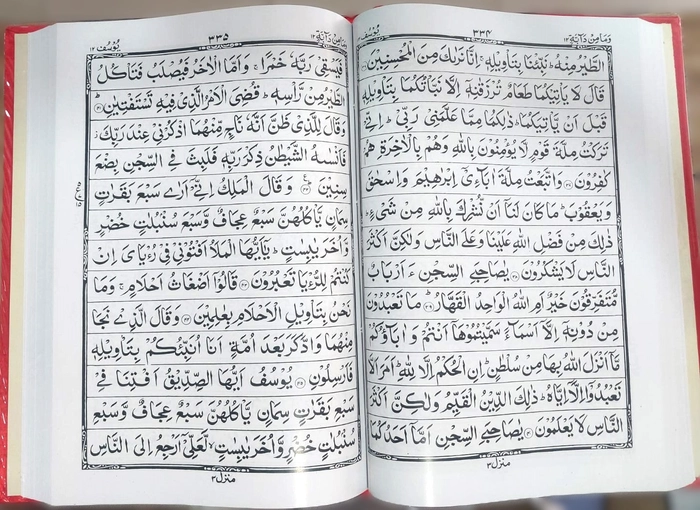 وَمَا مِنْ دَآبَّةٍ ١٢
٣٣٤
يُوْسُف ١٢
الطَّيْرُ مِنْهُ ؕ نَبِّئْنَا بِتَاْوِيْلِهٖ ۚ اِنَّا نَرٰىكَ مِنَ الْمُحْسِنِيْنَ
قَالَ لَا يَاْتِيْكُمَا طَعَامٌ تُرْزَقٰنِهٖۤ اِلَّا نَبَّاْتُكُمَا بِتَاْوِيْلِهٖ
قَبْلَ اَنْ يَّاْتِيَكُمَا ؕ ذٰلِكُمَا مِمَّا عَلَّمَنِيْ رَبِّيْ ؕ اِنِّيْ
تَرَكْتُ مِلَّةَ قَوْمٍ لَّا يُؤْمِنُوْنَ بِاللّٰهِ وَهُمْ بِالْاٰخِرَةِ هُمْ
كٰفِرُوْنَ ﴿٣٧﴾ وَاتَّبَعْتُ مِلَّةَ اٰبَآءِيْۤ اِبْرٰهِيْمَ وَاِسْحٰقَ
وَيَعْقُوْبَ ؕ مَا كَانَ لَنَاۤ اَنْ نُّشْرِكَ بِاللّٰهِ مِنْ شَيْءٍ ؕ
ذٰلِكَ مِنْ فَضْلِ اللّٰهِ عَلَيْنَا وَعَلَى النَّاسِ وَلٰكِنَّ اَكْثَرَ
النَّاسِ لَا يَشْكُرُوْنَ ﴿٣٨﴾ يٰصَاحِبَيِ السِّجْنِ ءَاَرْبَابٌ
مُّتَفَرِّقُوْنَ خَيْرٌ اَمِ اللّٰهُ الْوَاحِدُ الْقَهَّارُ ﴿٣٩﴾ مَا تَعْبُدُوْنَ
مِنْ دُوْنِهٖۤ اِلَّاۤ اَسْمَآءً سَمَّيْتُمُوْهَاۤ اَنْتُمْ وَاٰبَآؤُكُمْ
مَّاۤ اَنْزَلَ اللّٰهُ بِهَا مِنْ سُلْطٰنٍ ؕ اِنِ الْحُكْمُ اِلَّا لِلّٰهِ ؕ اَمَرَ اَلَّا
تَعْبُدُوْۤا اِلَّاۤ اِيَّاهُ ؕ ذٰلِكَ الدِّيْنُ الْقَيِّمُ وَلٰكِنَّ اَكْثَرَ
النَّاسِ لَا يَعْلَمُوْنَ ﴿٤٠﴾ يٰصَاحِبَيِ السِّجْنِ اَمَّاۤ اَحَدُكُمَا
منزل ٣
وَمَا مِنْ دَآبَّةٍ ١٢
٣٣٥
يُوْسُف ١٢
فَيَسْقِيْ رَبَّهٗ خَمْرًا ۚ وَاَمَّا الْاٰخَرُ فَيُصْلَبُ فَتَاْكُلُ
الطَّيْرُ مِنْ رَّاْسِهٖ ؕ قُضِيَ الْاَمْرُ الَّذِيْ فِيْهِ تَسْتَفْتِيٰنِ ﴿٤١﴾
وَقَالَ لِلَّذِيْ ظَنَّ اَنَّهٗ نَاجٍ مِّنْهُمَا اذْكُرْنِيْ عِنْدَ رَبِّكَ ؗ
فَاَنْسٰىهُ الشَّيْطٰنُ ذِكْرَ رَبِّهٖ فَلَبِثَ فِي السِّجْنِ بِضْعَ
سِنِيْنَ ﴿٤٢﴾ وَقَالَ الْمَلِكُ اِنِّيْۤ اَرٰى سَبْعَ بَقَرٰتٍ
سِمَانٍ يَّاْكُلُهُنَّ سَبْعٌ عِجَافٌ وَّسَبْعَ سُنْۢبُلٰتٍ خُضْرٍ
وَّاُخَرَ يٰبِسٰتٍ ؕ يٰۤاَيُّهَا الْمَلَاُ اَفْتُوْنِيْ فِيْ رُءْيَايَ اِنْ
كُنْتُمْ لِلرُّءْيَا تَعْبُرُوْنَ ﴿٤٣﴾ قَالُوْۤا اَضْغَاثُ اَحْلَامٍ ۚ وَمَا
نَحْنُ بِتَاْوِيْلِ الْاَحْلَامِ بِعٰلِمِيْنَ ﴿٤٤﴾ وَقَالَ الَّذِيْ نَجَا
مِنْهُمَا وَادَّكَرَ بَعْدَ اُمَّةٍ اَنَا اُنَبِّئُكُمْ بِتَاْوِيْلِهٖ
فَاَرْسِلُوْنِ ﴿٤٥﴾ يُوْسُفُ اَيُّهَا الصِّدِّيْقُ اَفْتِنَا فِيْ
سَبْعِ بَقَرٰتٍ سِمَانٍ يَّاْكُلُهُنَّ سَبْعٌ عِجَافٌ وَّسَبْعِ
سُنْۢبُلٰتٍ خُضْرٍ وَّاُخَرَ يٰبِسٰتٍ ۙ لَّعَلِّيْۤ اَرْجِعُ اِلَى النَّاسِ
منزل ٣